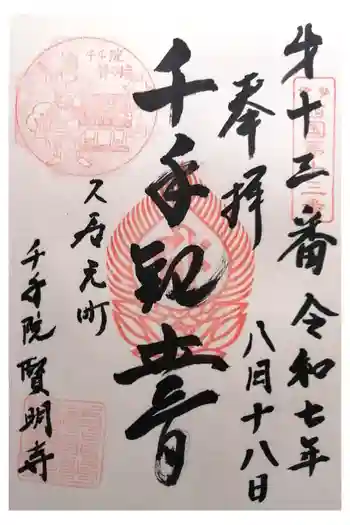 奉拝
第十三番 令和七年
八月十八日
千手観世音
久居元町
千手院 賢明寺
千手院
賢明寺